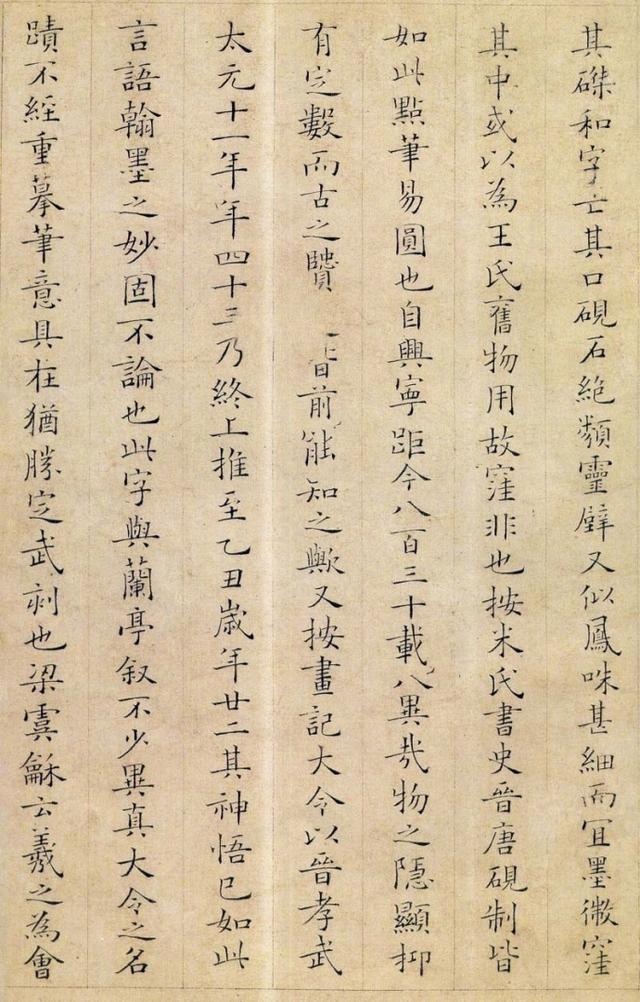 其磔和字亡其口硯石絶類靈壁又似鳳咮甚細而宜墨微窪
其中或以為王氏舊物用故窪非也按米氏書史晉唐硯制皆
如此點筆易圓也自興寧距今八百三十載八異哉物之隱顯抑
有定數而古之賢者前能知之歟又按畫記大令以晉孝武
太元十一年年四十三乃終上推至乙丑歲年廿二其神悟已如此
言語翰墨之妙固不論也此字與蘭亭叙不少異真大令之名
蹟不經重摹筆意具在猶勝定武刻也梁虞龢云羲之為會